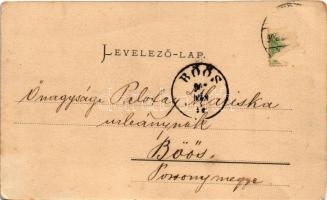 LEVELEZŐ-LAP.
BŐŐS
Önagysága Palofay Mariska
urleánynak
Bőős.
Posonymegye